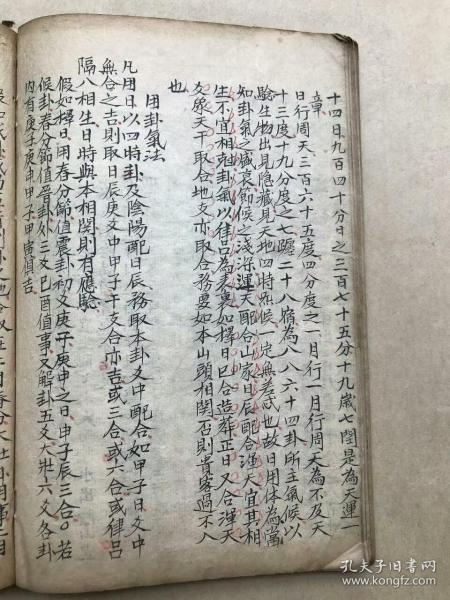 十四日九百四十分日之三百七十五分十九歲七閏是為天運一
章
日行周天三百六十五度四分度之一月行一月行周天為不及天
十三度十九分度之七躔二十八宿為八八六十四卦所主氣候以
驗生物出見隱藏見天地四時氣候一定無差忒也故日用体為當
知卦氣之盛衰節候之淺深渾天配合山家日辰配合渾天宜其相
生不宜相剋卦氣以律呂為表裏如擇日已合造葬正日又合渾天
爻象天干取合地支亦取合務要如本山頭相関否則貴客過不入
也
用卦氣法
凡用日以四時卦及陰陽配日辰務取本卦爻中配合如甲子日爻中
無合之吉則取日辰庚爻中甲子干支合亦吉或三合或六合或律呂
隔八相生日時與本相関則有應驗
假如擇日用春分節值震卦初爻庚子庚申之日申子辰三合。若
候卦春分節值晉卦外三爻己酉值事又解卦五爻大壯六爻各卦
內有庚子庚申甲子甲寅順吉
孔夫子旧书网
www.kongfz.com